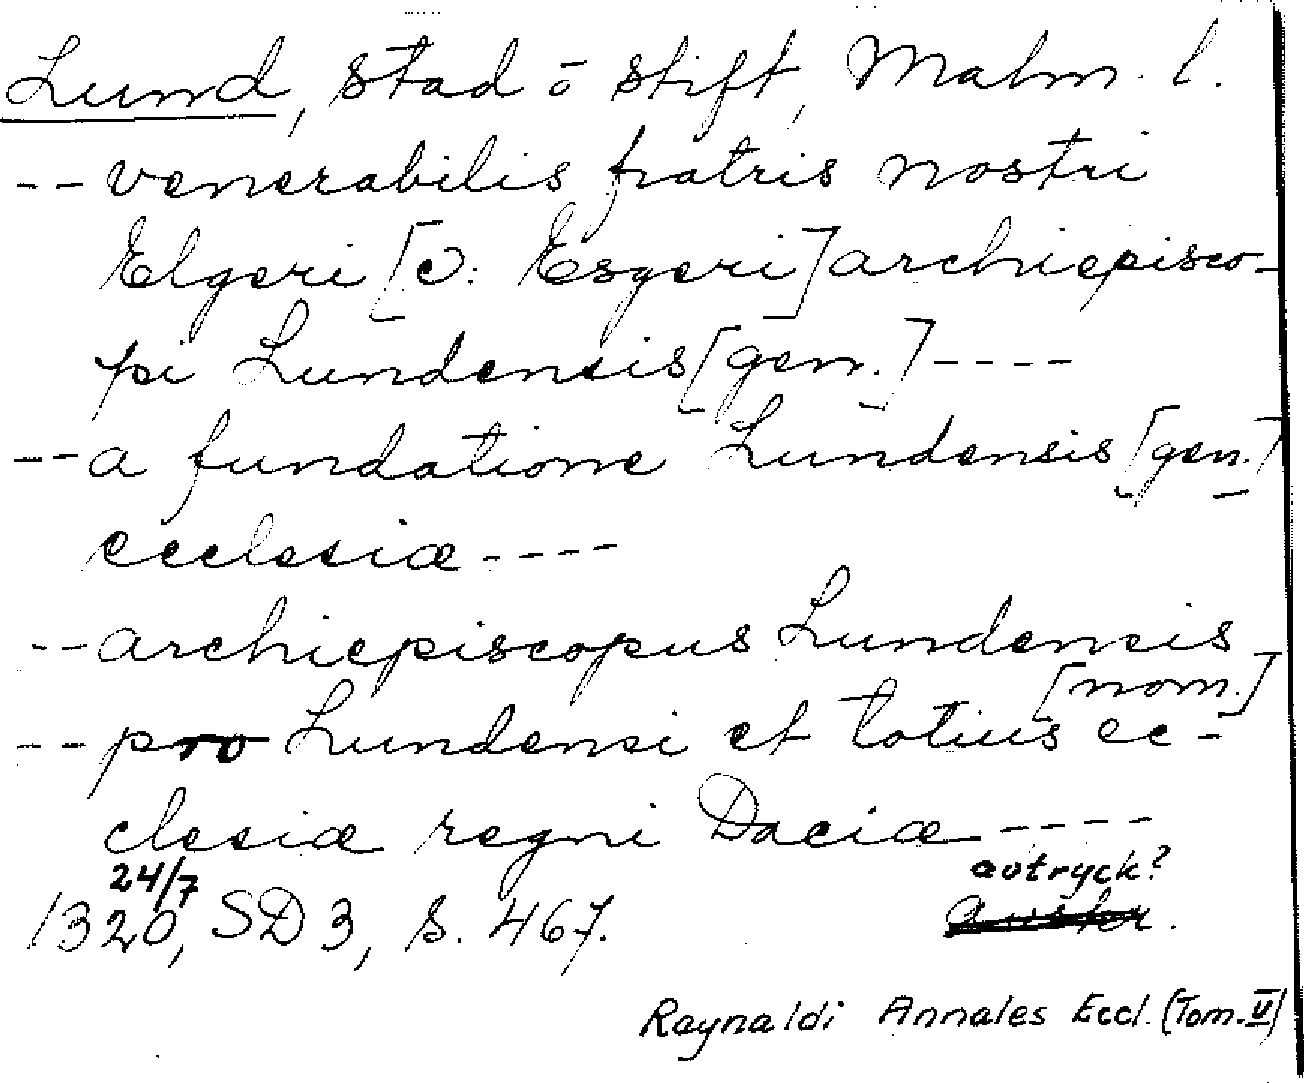 Lund, stad o stift, Malm. l.
-- venerabilis fratris nostri
Elgeri [ɔ: Esgeri] archiepisco-
pi Lundensis [gen.] ----
-- a fundatione Lundensis [gen.]
ecclesiæ ----
-- archiepiscopus Lundensis
[nom.]
-- pro Lundensi et totius ec-
clesiæ regni Daciæ ----
24/7 avtryck?
1320, SD 3, s. 467.
Raynaldi Annales Eccl. (Tom. V)